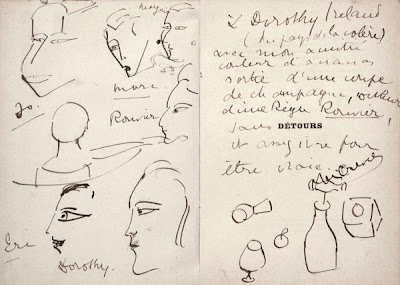 marc
Rouvier
Jo.
Eve
Dorothy.
Dorothy Ireland
(du pays de la colère)
avec mon amitié
couleur d'ananas
sortie d'une coupe
de champagne, couleur
d'une Régie Rouvier,
sans DÉTOURS
et assez ivre pour
être vraie.